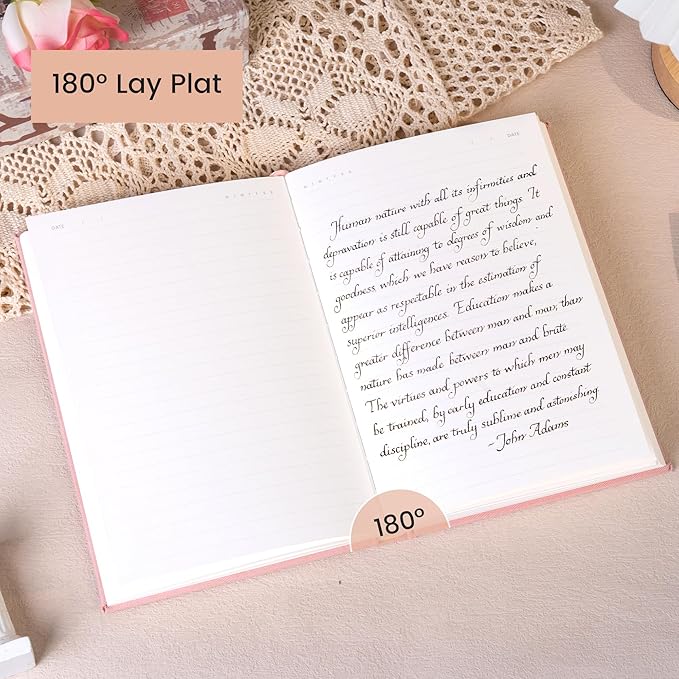 180° Lay Plat
DATE / /
WINTTEE
WINTTEE
/ / DATE
Human nature with all its infirmities and
depravation is still capable of great things. It
is capable of attaining to degrees of wisdom and
goodness, which we have reason to believe,
appear as respectable in the estimation of
superior intelligences. Education makes a
greater difference between man and man, than
nature has made between man and brute.
The virtues and powers to which men may
be trained, by early education and constant
discipline, are truly sublime and astonishing.
~John Adams
180°